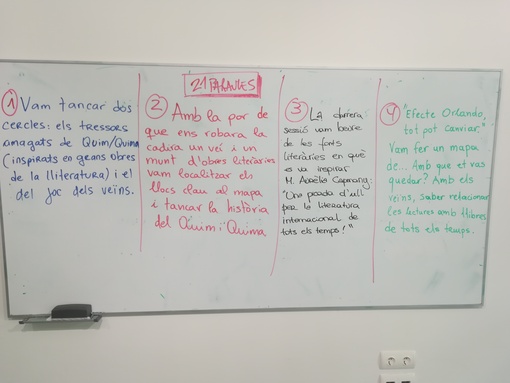 21 PARAULES
1 Vam tancar dos
cercles: els tressors
amagats de Quim/Quima
(inspirats en grans obres
de la lliteratura) i el
del joc dels veïns.
2 Amb la por de
que ens robara la
cadira un veí i un
munt d'obres literàries
vam localitzar els
llocs clau al mapa
i tancar la història
del Quim i Quima
3 La darrera
sessió vam beure
de les fonts
literàries en què
es va inspirar
M. Aurèlia Capmany:
"Una passada d'ull
per la literatura
internacional de
tots els temps!"
4 "Efecte Orlando,
tot pot canviar."
Vam fer un mapa
de... Amb que et vas
quedar? Amb els
veïns, saber relacionar
les lectures amb llibres
de tots els temps.